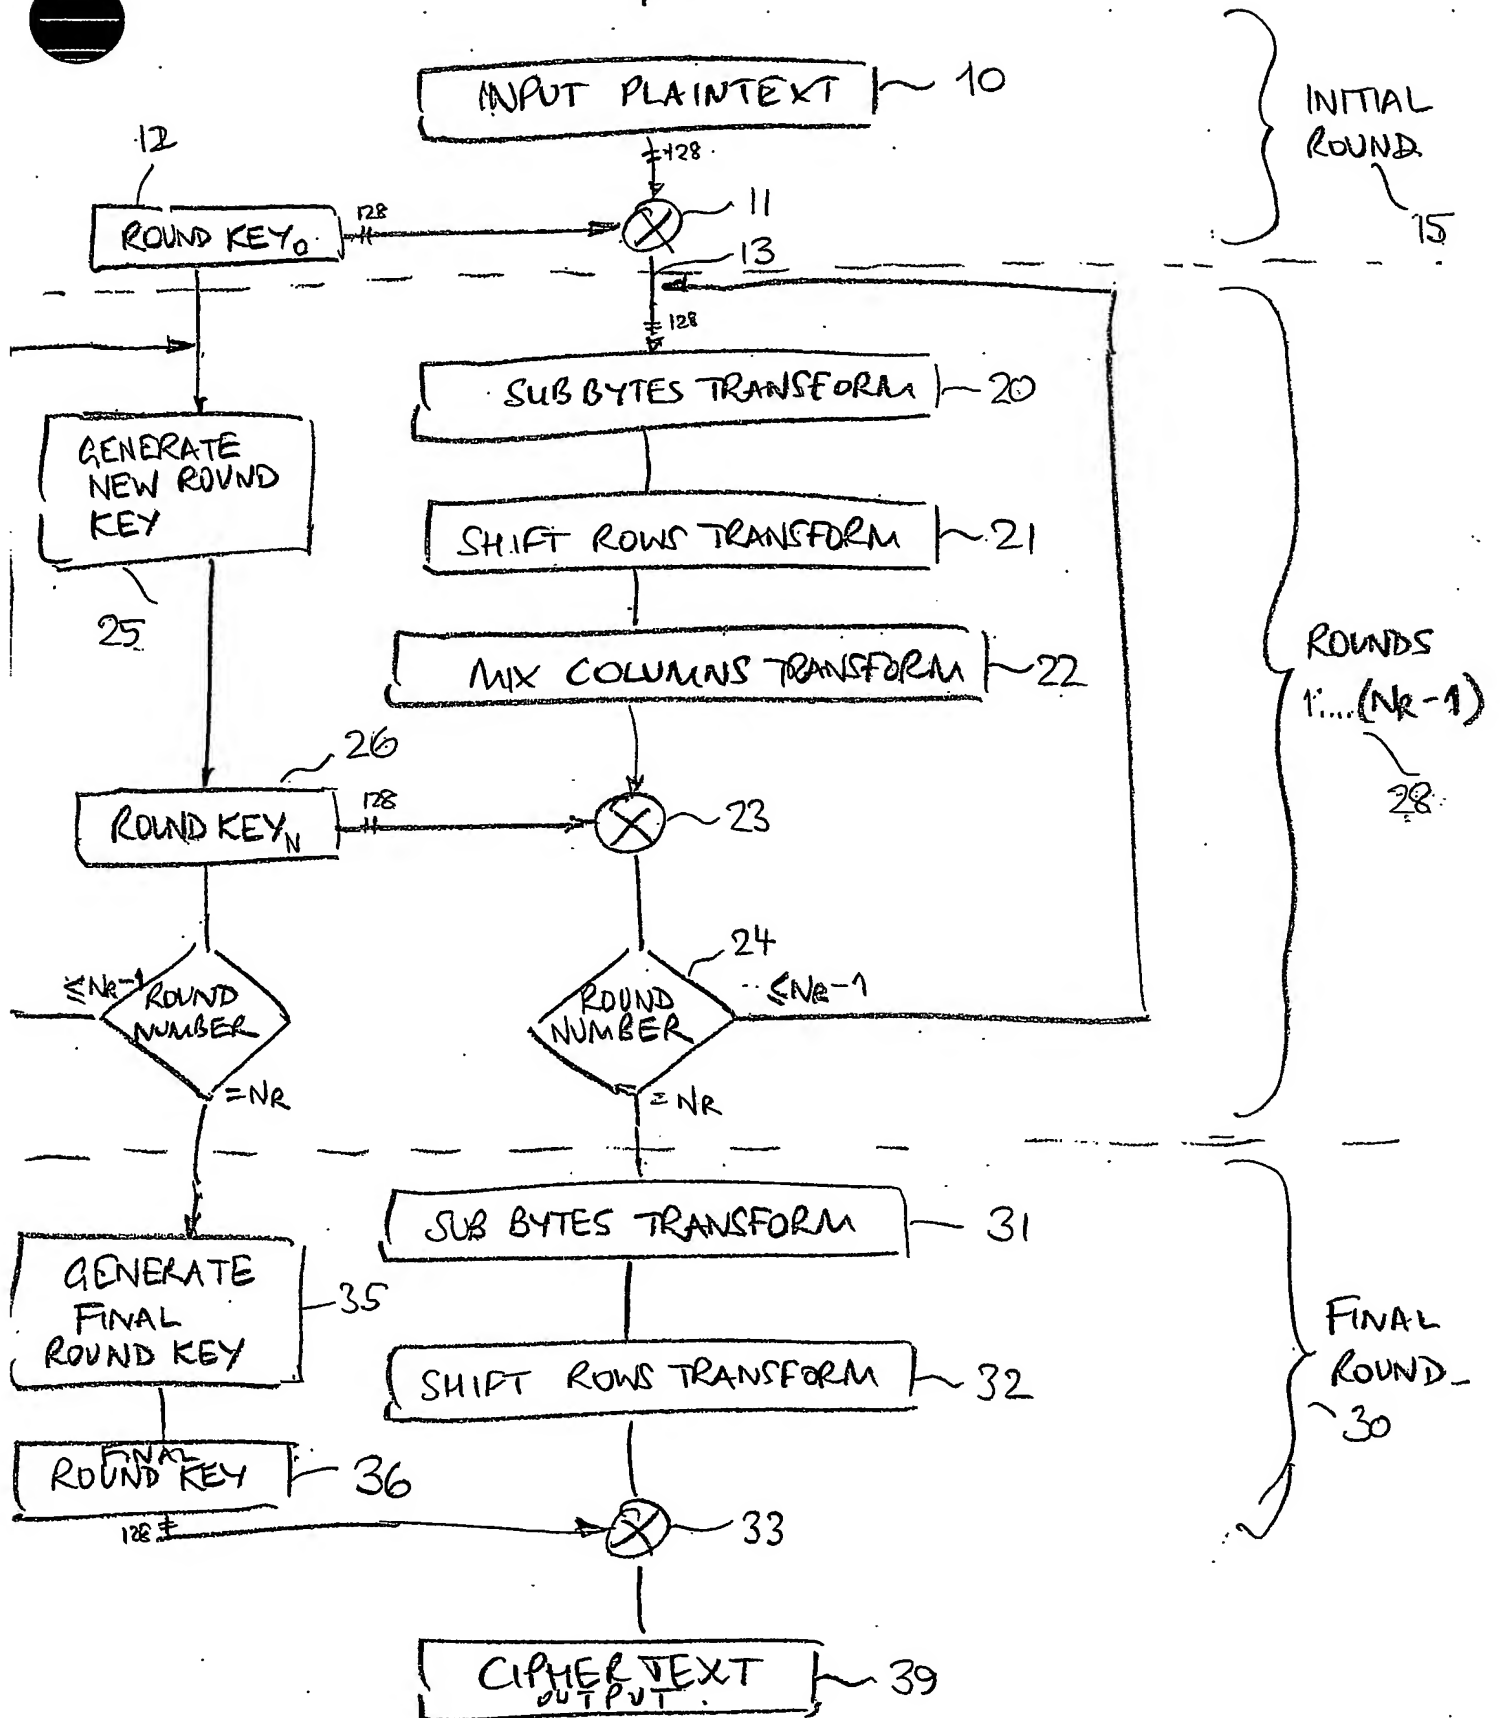 INPUT PLAINTEXT
10
INITIAL
ROUND
15
128
12
ROUND KEY0
128
11
13
128
SUB BYTES TRANSFORM
20
GENERATE
NEW ROUND
KEY
25
SHIFT ROWS TRANSFORM
21
MIX COLUMNS TRANSFORM
22
ROUNDS
1....(NR-1)
28
26
ROUND KEYN
128
23
24
≤NR-1
ROUND
NUMBER
=NR
ROUND
NUMBER
≤NR-1
=NR
SUB BYTES TRANSFORM
31
GENERATE
FINAL
ROUND KEY
35
SHIFT ROWS TRANSFORM
32
FINAL
ROUND
30
FINAL
ROUND KEY
36
128
33
CIPHER TEXT
OUTPUT
39